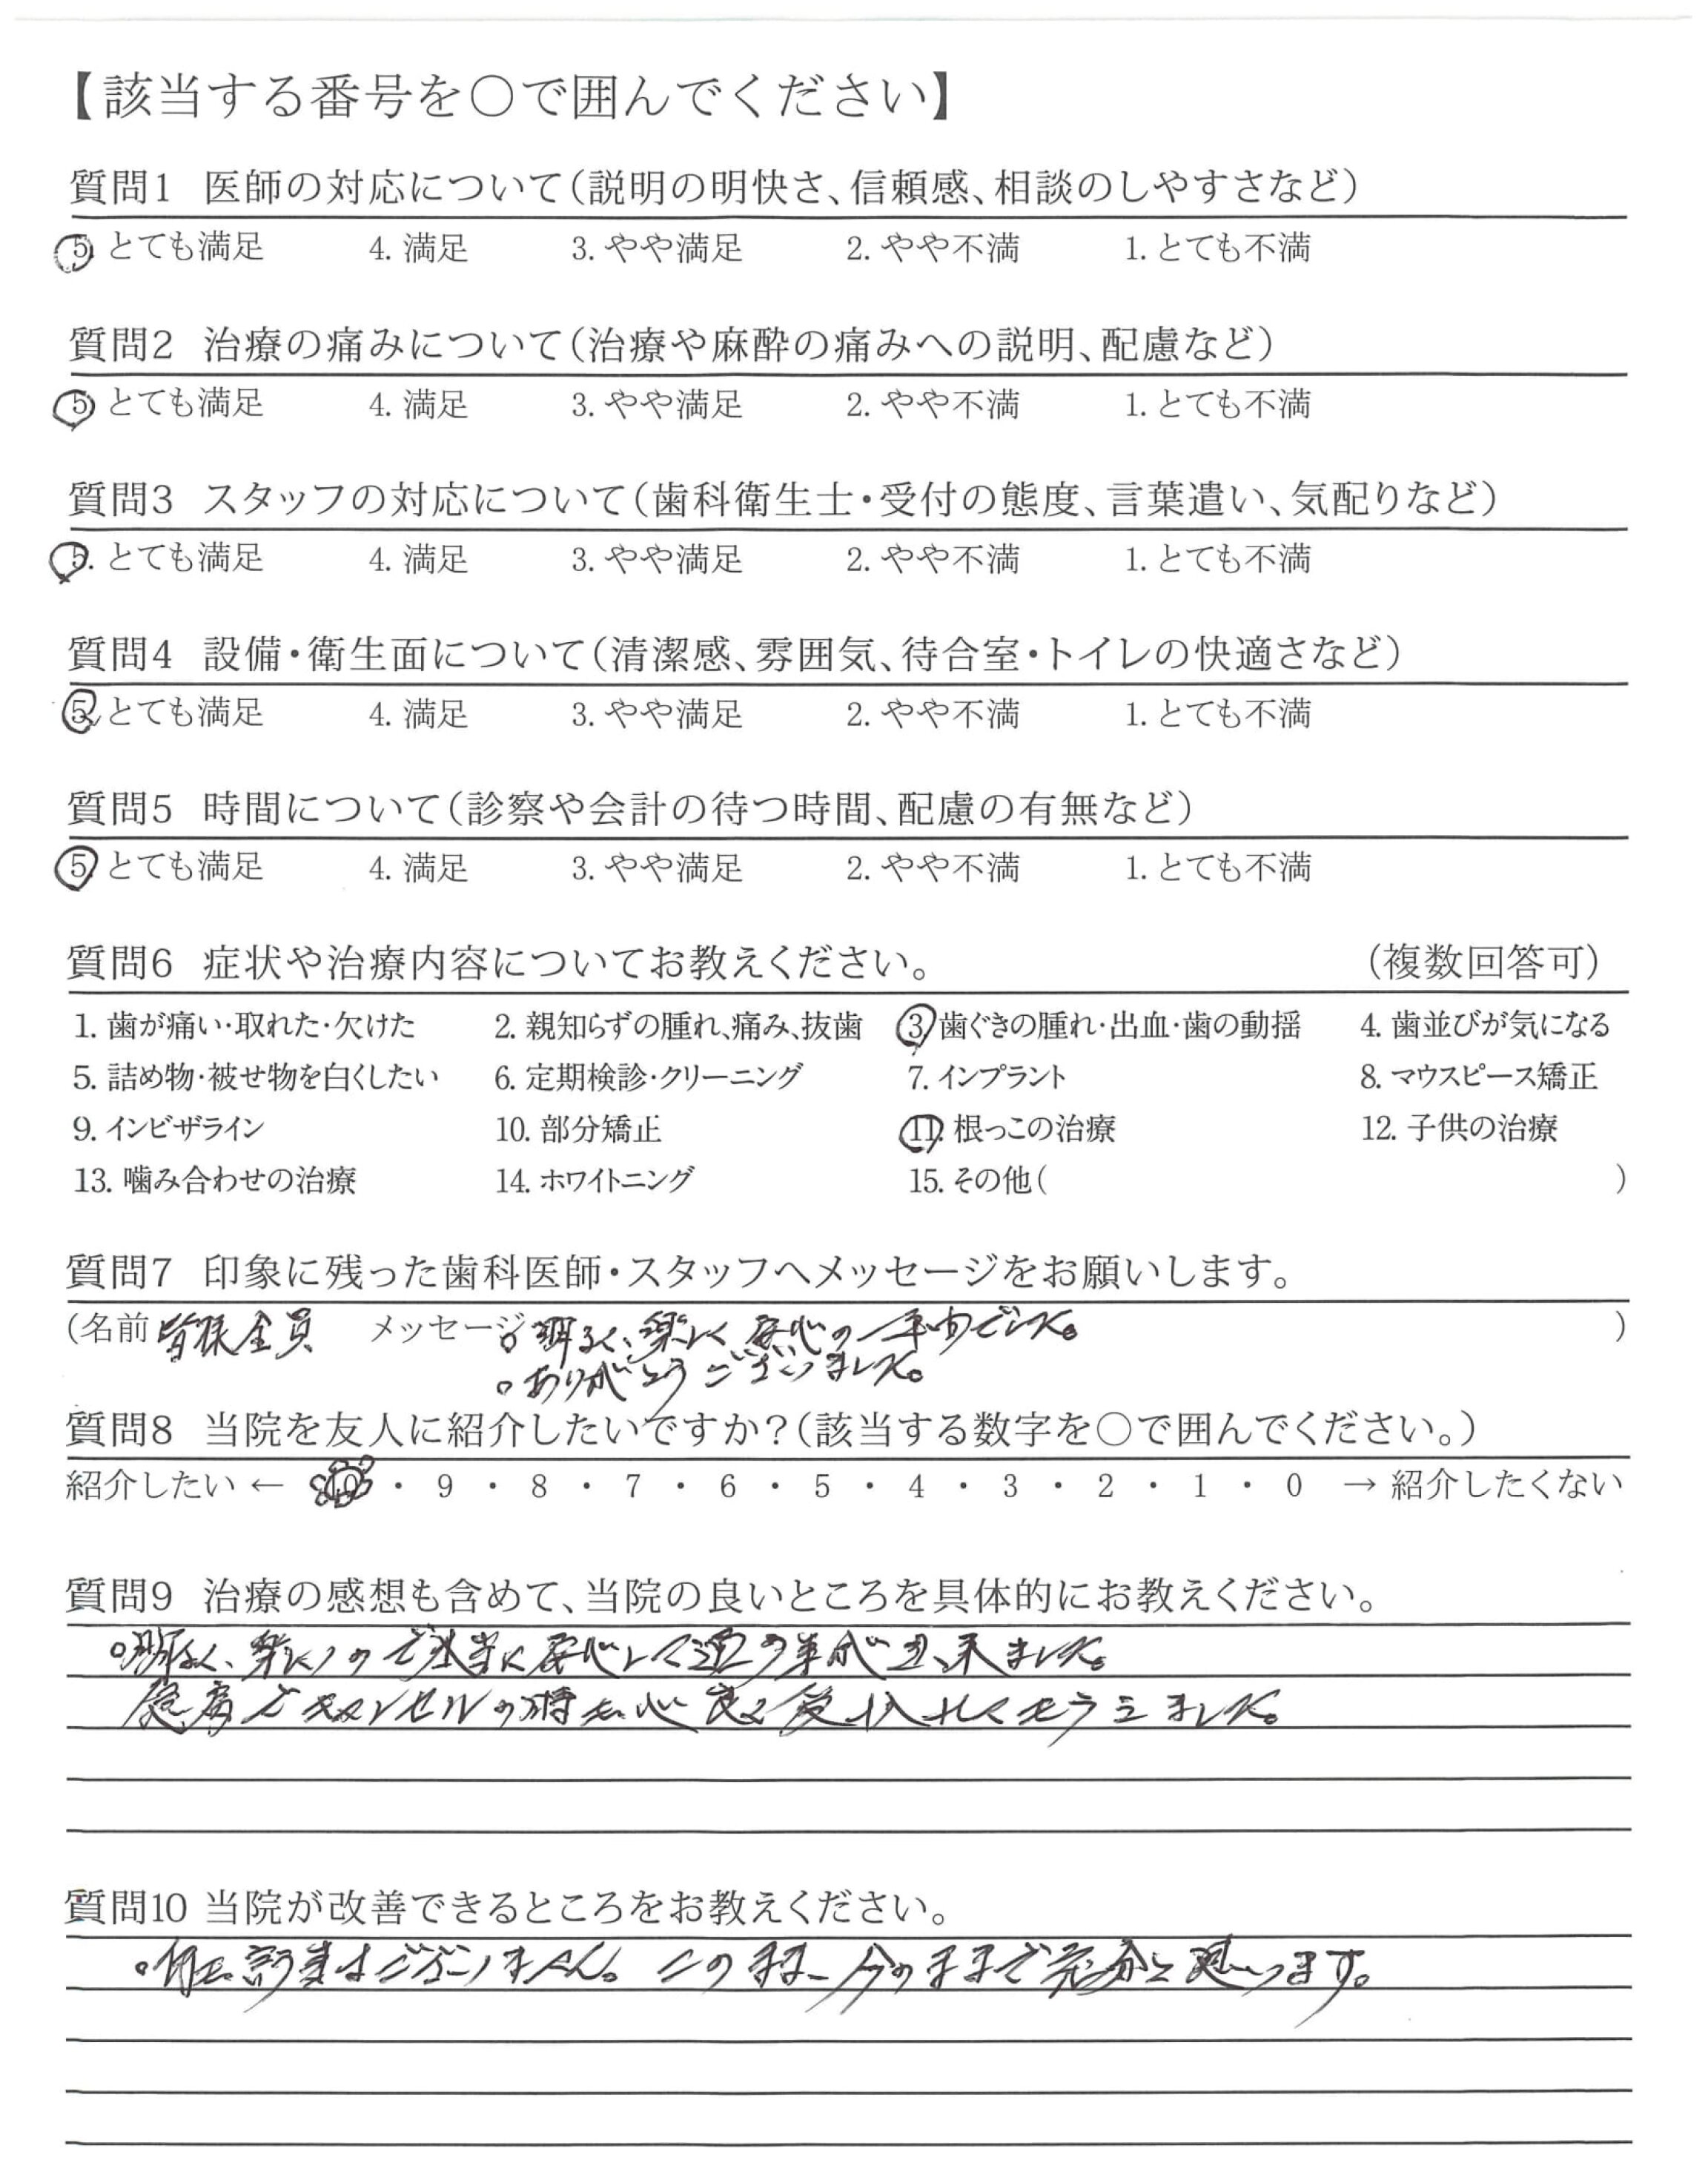 【該当する番号を○で囲んでください】
質問1 医師の対応について(説明の明快さ、信頼感、相談のしやすさなど)
5. とても満足 4. 満足 3. やや満足 2. やや不満 1. とても不満
質問2 治療の痛みについて(治療や麻酔の痛みへの説明、配慮など)
5. とても満足 4. 満足 3. やや満足 2. やや不満 1. とても不満
質問3 スタッフの対応について(歯科衛生士・受付の態度、言葉遣い、気配りなど)
5. とても満足 4. 満足 3. やや満足 2. やや不満 1. とても不満
質問4 設備・衛生面について(清潔感、雰囲気、待合室・トイレの快適さなど)
5. とても満足 4. 満足 3. やや満足 2. やや不満 1. とても不満
質問5 時間について(診察や会計の待つ時間、配慮の有無など)
5. とても満足 4. 満足 3. やや満足 2. やや不満 1. とても不満
質問6 症状や治療内容についてお教えください。 (複数回答可)
1. 歯が痛い・取れた・欠けた 2. 親知らずの腫れ、痛み、抜歯 3. 歯ぐきの腫れ・出血・歯の動揺 4. 歯並びが気になる
5. 詰め物・被せ物を白くしたい 6. 定期検診・クリーニング 7. インプラント 8. マウスピース矯正
9. インビザライン 10. 部分矯正 11. 根っこの治療 12. 子供の治療
13. 噛み合わせの治療 14. ホワイトニング 15. その他( )
質問7 印象に残った歯科医師・スタッフへメッセージをお願いします。
(名前 皆様全員 メッセージ 。明るく、楽しく 安心の一年間でした。 )
。ありがとうございました。
質問8 当院を友人に紹介したいですか?(該当する数字を○で囲んでください。)
紹介したい ← 10 ・ 9 ・ 8 ・ 7 ・ 6 ・ 5 ・ 4 ・ 3 ・ 2 ・ 1 ・ 0 → 紹介したくない
質問9 治療の感想も含めて、当院の良いところを具体的にお教えください。
本当に安心して通う事が出来ました。
急病でキャンセルの時も心良く受け入れてもらえました。
質問10 当院が改善できるところをお教えください。
。何も言う事はございません。このまま、今のままで充分と思います。